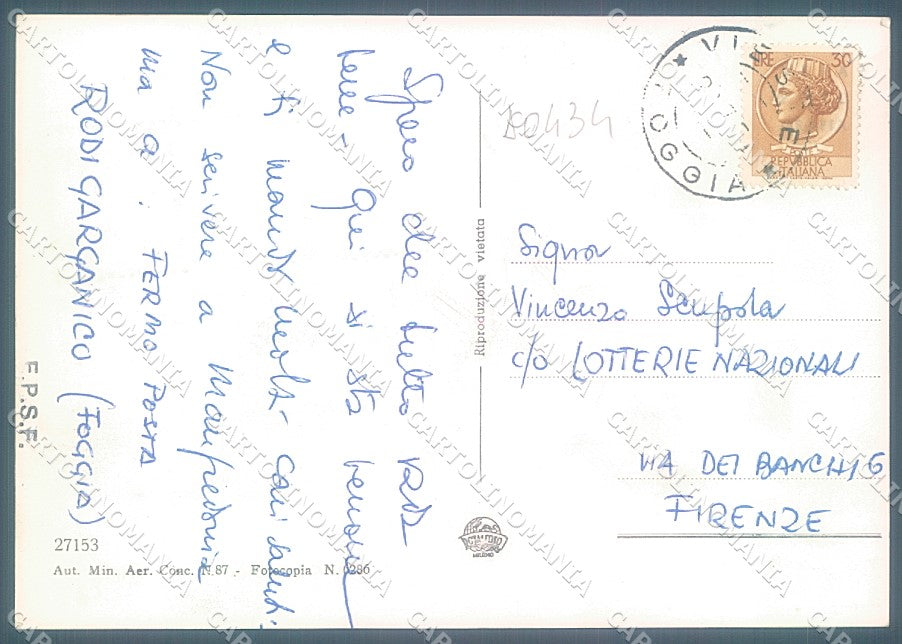 Spero che tutto vada
bene - Qui si sta benone
e ti mando molti cari saluti.
Non scrivere a Manfredonia
ma a: FERMO POSTA
RODI GARGANICO (FOGGIA)
E.P.S.F.
27153
Aut. Min. Aer. Conc. N.87 - Fotocopia N. 0286
Riproduzione vietata
MILANO
LIRE 30
REPUBBLICA
ITALIANA
OGGIA
Signor
Vincenzo Scupola
c/o LOTTERIE NAZIONALI
VIA DEI BANCHI 6
FIRENZE
CARTOLINOMANIA